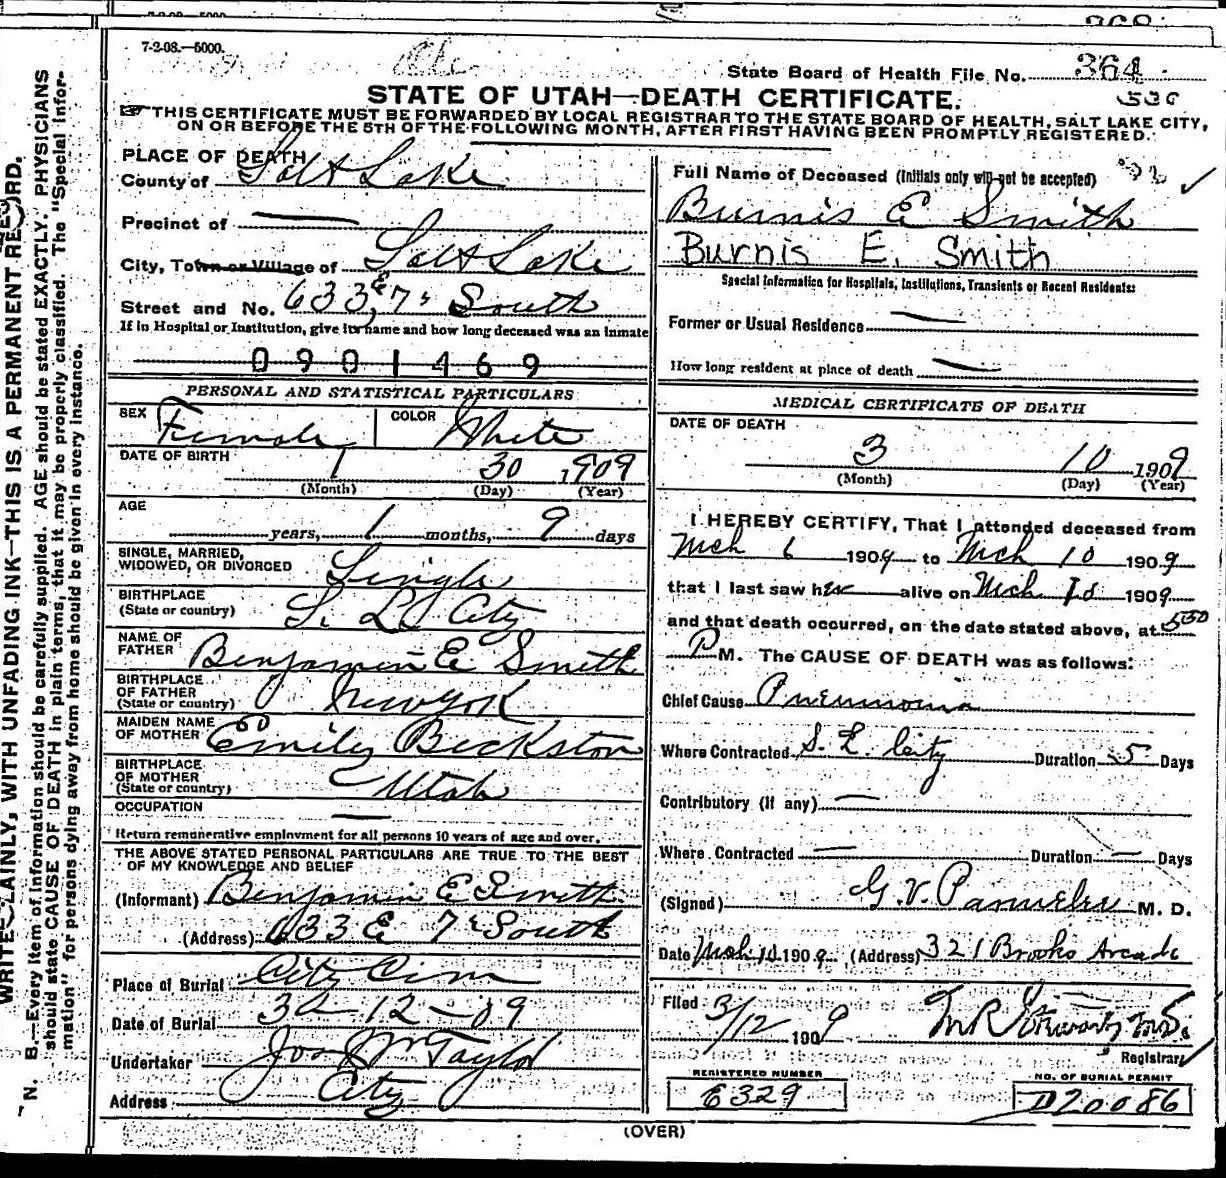 7-2-08.—5000.
State Board of Health File No. 364
530
STATE OF UTAH—DEATH CERTIFICATE.
THIS CERTIFICATE MUST BE FORWARDED BY LOCAL REGISTRAR TO THE STATE BOARD OF HEALTH, SALT LAKE CITY,
ON OR BEFORE THE 5TH OF THE FOLLOWING MONTH, AFTER FIRST HAVING BEEN PROMPTLY REGISTERED.
PLACE OF DEATH
County of Salt Lake
Precinct of —
City, Town or Village of Salt Lake
Street and No. 633 E 7" South
If in Hospital or Institution, give its name and how long deceased was an inmate
0901469
PERSONAL AND STATISTICAL PARTICULARS
SEX Female COLOR White
DATE OF BIRTH 1 30 1909
(Month) (Day) (Year)
AGE
years, 1 months, 9 days
SINGLE, MARRIED,
WIDOWED, OR DIVORCED Single
BIRTHPLACE
(State or country) S. L. City
NAME OF
FATHER Benjamin E Smith
BIRTHPLACE
OF FATHER
(State or country) New York
MAIDEN NAME
OF MOTHER Emily Beckston
BIRTHPLACE
OF MOTHER
(State or country) Utah
OCCUPATION —
Return remunerative employment for all persons 10 years of age and over.
THE ABOVE STATED PERSONAL PARTICULARS ARE TRUE TO THE BEST
OF MY KNOWLEDGE AND BELIEF
(Informant) Benjamin E Smith
(Address) 633 E 7" South
Place of Burial City Cem
Date of Burial 3 12 - 09
Undertaker Jos Wm Taylor
Address City
Full Name of Deceased (Initials only will not be accepted)
Burnis E Smith
Burnis E. Smith
Special Information for Hospitals, Institutions, Transients or Recent Residents:
Former or Usual Residence —
How long resident at place of death —
MEDICAL CERTIFICATE OF DEATH
DATE OF DEATH
3 10 1909
(Month) (Day) (Year)
I HEREBY CERTIFY, That I attended deceased from
Mch 6 1909 to Mch 10 1909
that I last saw her alive on Mch 10 1909
and that death occurred, on the date stated above, at 5 30
P M. The CAUSE OF DEATH was as follows:
Chief Cause Pneumonia
Where Contracted S. L. City Duration 5 Days
Contributory (if any) —
Where Contracted — Duration — Days
(Signed) G. V. M. D.
Date Mch 10 1909 (Address) 321 Brooks Arcade
Filed 3/12 1909
Registrar
REGISTERED NUMBER
6329
NO. OF BURIAL PERMIT
D20086
(OVER)
WRITE PLAINLY, WITH UNFADING INK—THIS IS A PERMANENT RECORD.
N. B.—Every item of information should be carefully supplied. AGE should be stated EXACTLY. PHYSICIANS
should state CAUSE OF DEATH in plain terms, that it may be properly classified. The "Special Infor-
mation" for persons dying away from home should be given in every instance.